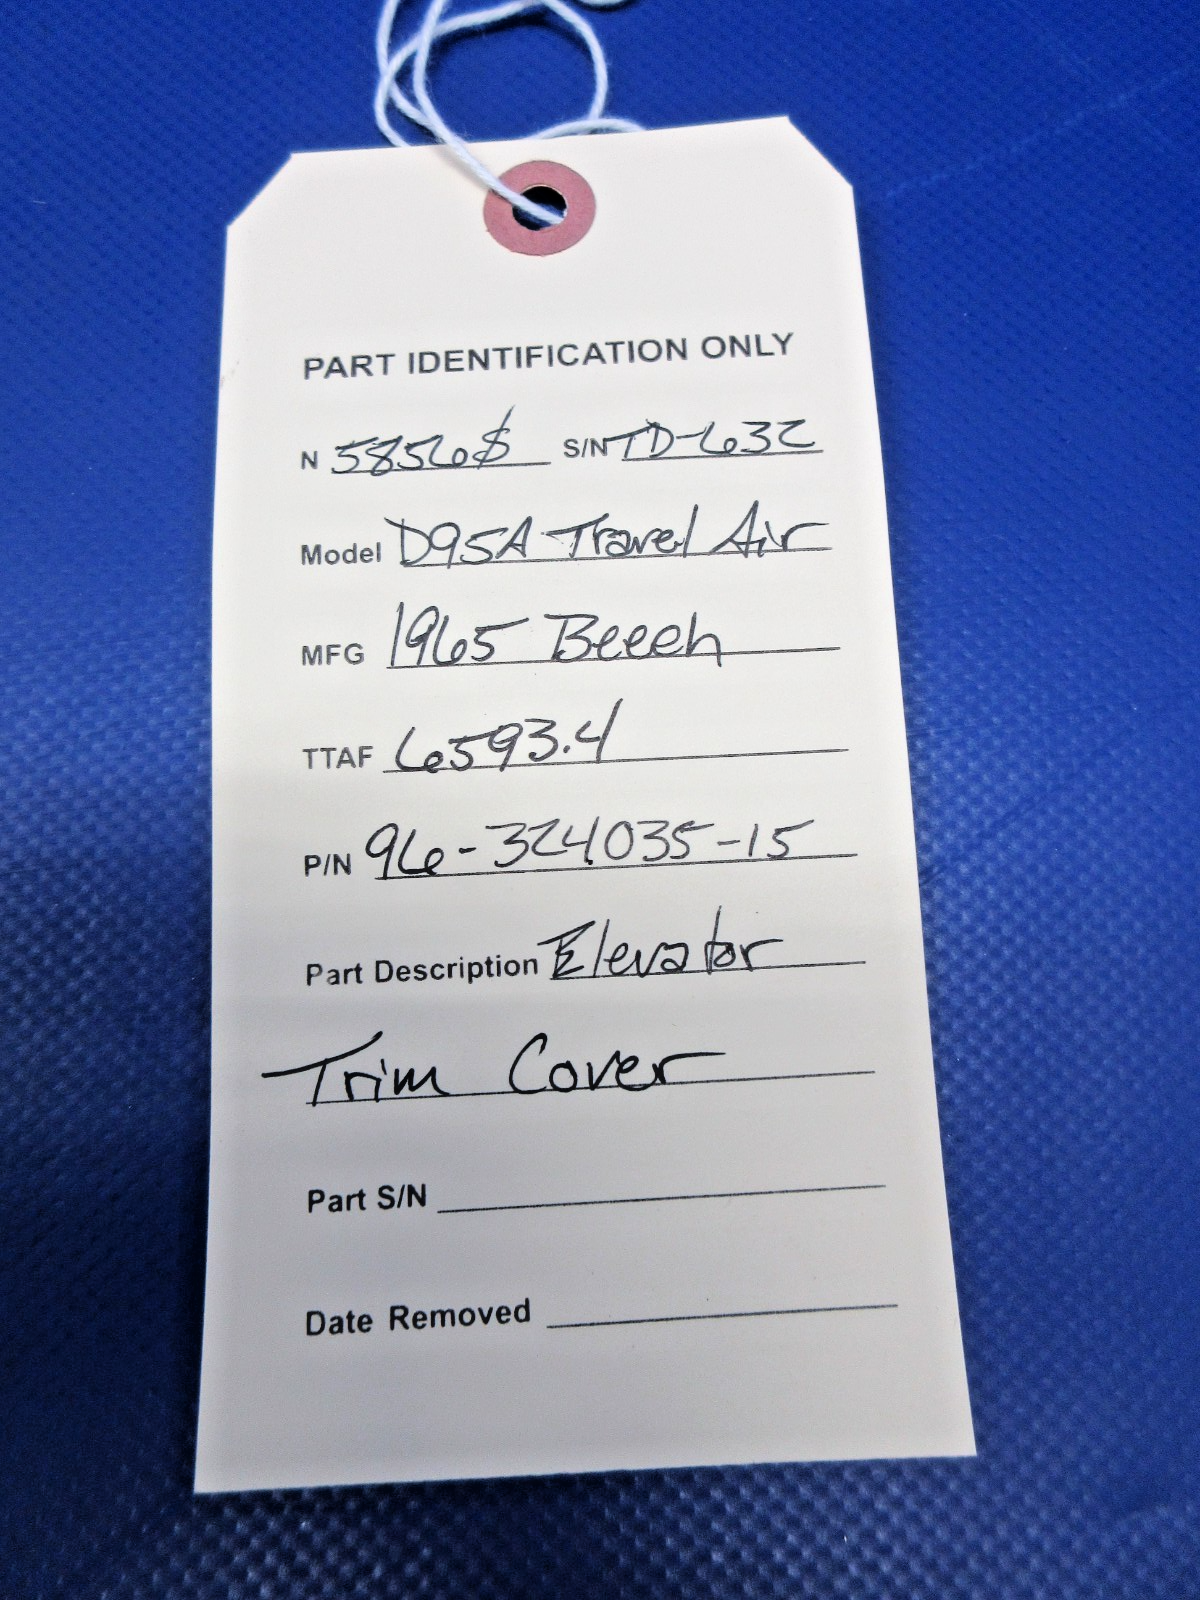 PART IDENTIFICATION ONLY
N 5856S S/N TD-632
Model D95A Travel Air
MFG 1965 Beech
TTAF 6593.4
P/N 96-324035-15
Part Description Elevator
Trim Cover
Part S/N
Date Removed